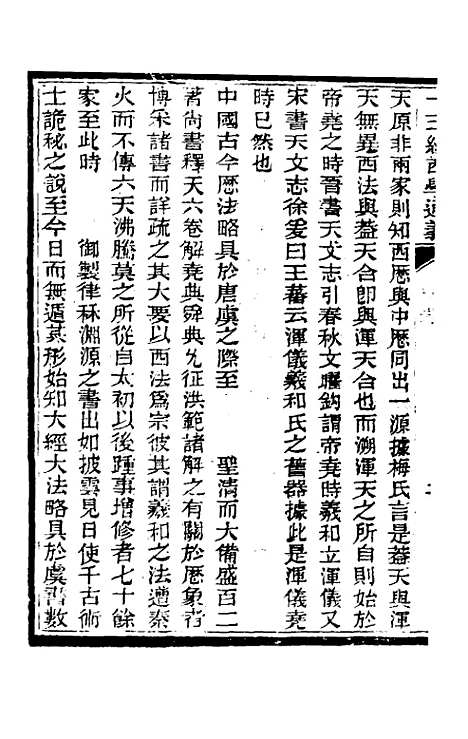 十三經西學通義
天原非兩家則知西厯與中厯同出一源據梅氏言是蓋天與渾
天無異西法與蓋天合卽與渾天合也而溯渾天之所自則始於
帝堯之時晉書天文志引春秋文曜鈎謂帝堯時羲和立渾儀又
宋書天文志徐爰曰王蕃云渾儀羲和氏之舊器據此是渾儀堯
時已然也
中國古今厯法略具於唐虞之際至 聖清而大備盛百二
著尚書釋天六卷解堯典舜典允征洪範諸解之有關於厯象者
博采諸書而詳疏之其大要以西法爲宗彼其謂羲和之法遭秦
火而不傳六天沸騰莫之所從自太初以後踵事增修者七十餘
家至此時 御製律秝淵源之書出如披雲見日使千古術
士詭秘之說至今日而無遁其形始知大經大法略具於虞書數